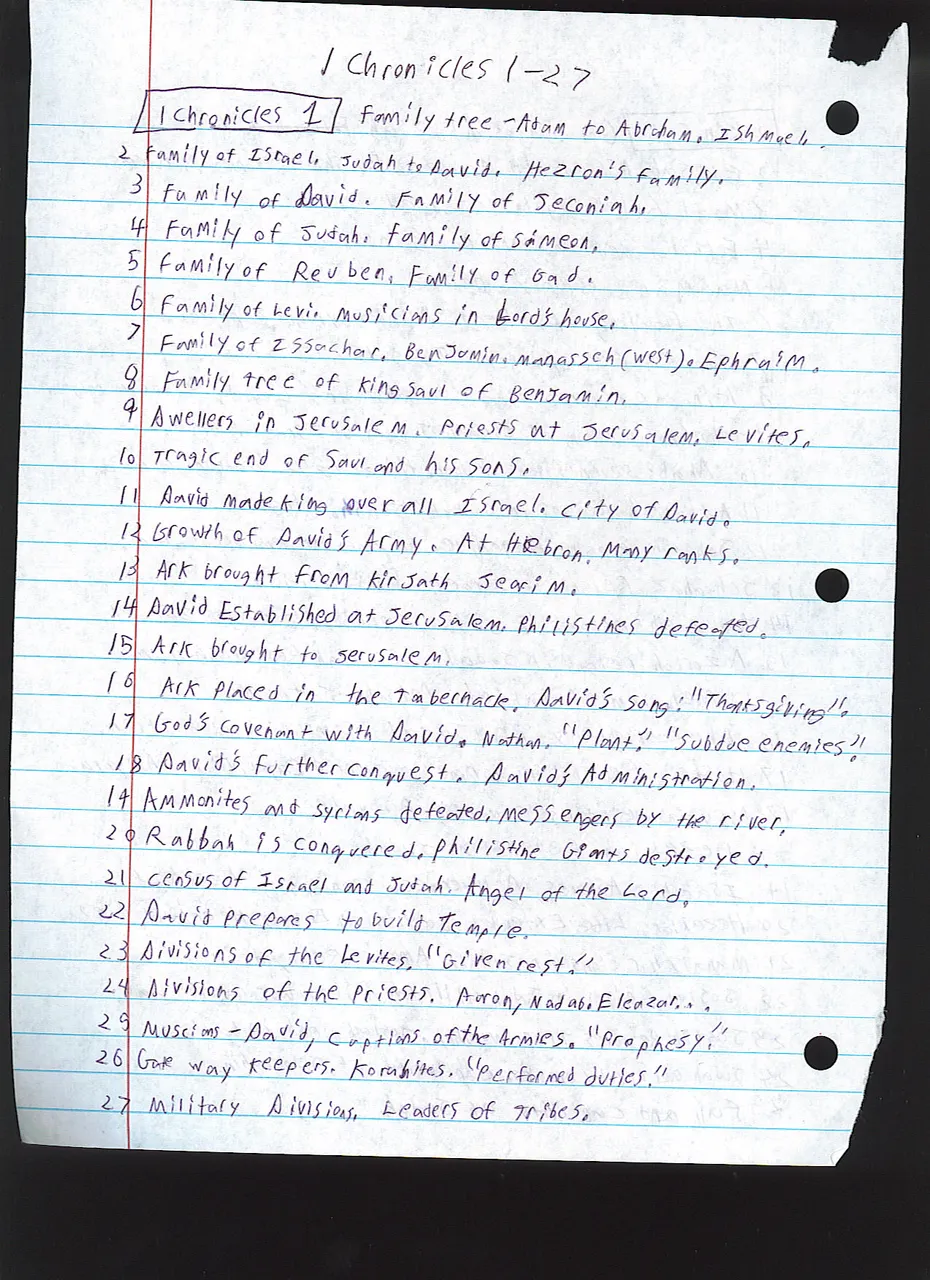 1 Chronicles 1-27
1 Chronicles 1 Family tree - Adam to Abraham. Ishmael.
2 Family of Israel. Judah to David. Hezron's family.
3 Family of David. Family of Jeconiah.
4 Family of Judah. Family of Simeon.
5 Family of Reuben. Family of Gad.
6 Family of Levi. Musicians in Lord's house.
7 Family of Issachar. Benjamin. Manasseh (west). Ephraim.
8 Family tree of King Saul of Benjamin.
9 Dwellers in Jerusalem. Priests at Jerusalem. Levites.
10 Tragic end of Saul and his sons.
11 David made king over all Israel. City of David.
12 Growth of David's Army. At Hebron. Many ranks.
13 Ark brought from Kirjath Jearim.
14 David Established at Jerusalem. Philistines defeated.
15 Ark brought to Jerusalem.
16 Ark placed in the Tabernacle. David's song: "Thanksgiving".
17 God's covenant with David. Nathan. "Plant." "Subdue enemies."
18 David's further conquest. David's Administration.
19 Ammonites and Syrians defeated. Messengers by the river.
20 Rabbah is conquered. Philistine Giants destroyed.
21 Census of Israel and Judah. Angel of the Lord.
22 David prepares to build Temple.
23 Divisions of the Levites. "Given rest."
24 Divisions of the Priests. Aaron, Nadab. Eleazar...
25 Muscians - David, Captions of the Armies. "Prophesy."
26 Gate way keepers. Korahites. "Performed duties."
27 Military Divisions. Leaders of Tribes.